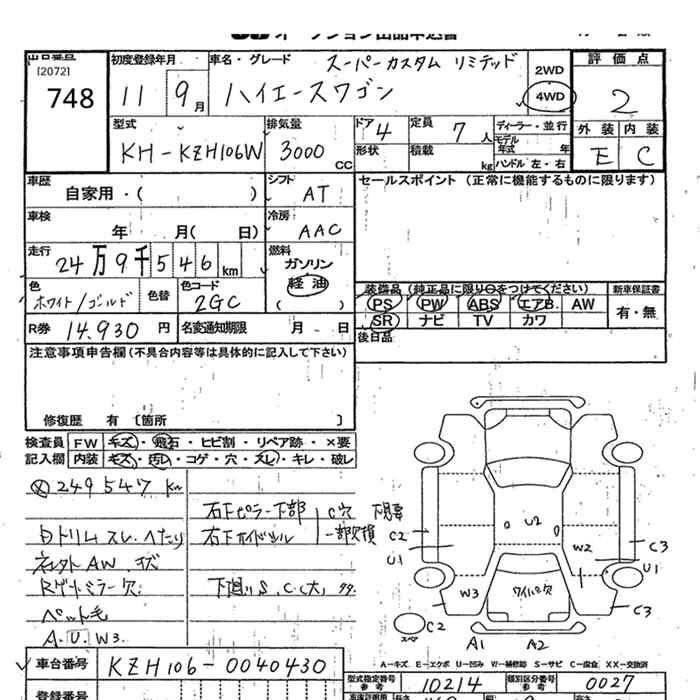 オークション出品申込書
出品番号
[2072]
748
初度登録年月
11 9月
車名・グレード
スーパーカスタム リミテッド
ハイエースワゴン
2WD
4WD
評価点
2
外装 内装
E C
型式
KH-KZH106W
排気量
3000 cc
ドア 4
形状
定員 7人
積載 kg
ディーラー・並行
モデル年式 年
ハンドル 左・右
車歴
自家用・( )
シフト
AT
セールスポイント (正常に機能するものに限ります)
車検
年 月( 日)
冷房
AAC
走行
24万9千546km
燃料
ガソリン
軽油
( )
色
ホワイト/ゴールド
色替
色コード
2GC
装備品 (純正品に限り○をつけてください)
新車保証書
PS PW ABS エアB. AW
有・無
SR ナビ TV カワ
R券 14.930円
名変通知期限 月 日
後日品
注意事項申告欄(不具合内容等は具体的に記入して下さい)
修復歴 有 〔箇所 〕
検査員 FW キズ・飛石・ヒビ割・リペア跡・×要
記入欄 内装 キズ・汚れ・コゲ・穴・スレ・キレ・破レ
249547 Km
右下ピラー下部 C穴
内トリムスレ、ヘタリ
一部欠損
AW キズ
Rゲートミラー欠
下廻りS、C(大)
ペット毛
A.U.W3
U2
W2
C2
U1
C3
U1
W3
ワイパー欠
C3
C2
スペ
A1 A2
A-キズ E-エクボ U-凹み W-補修跡 S-サビ C-腐食 XX-交換済
車台番号 KZH106-0040430
型式指定番号
参考
10214
類別区分番号
参考
0027
登録番号